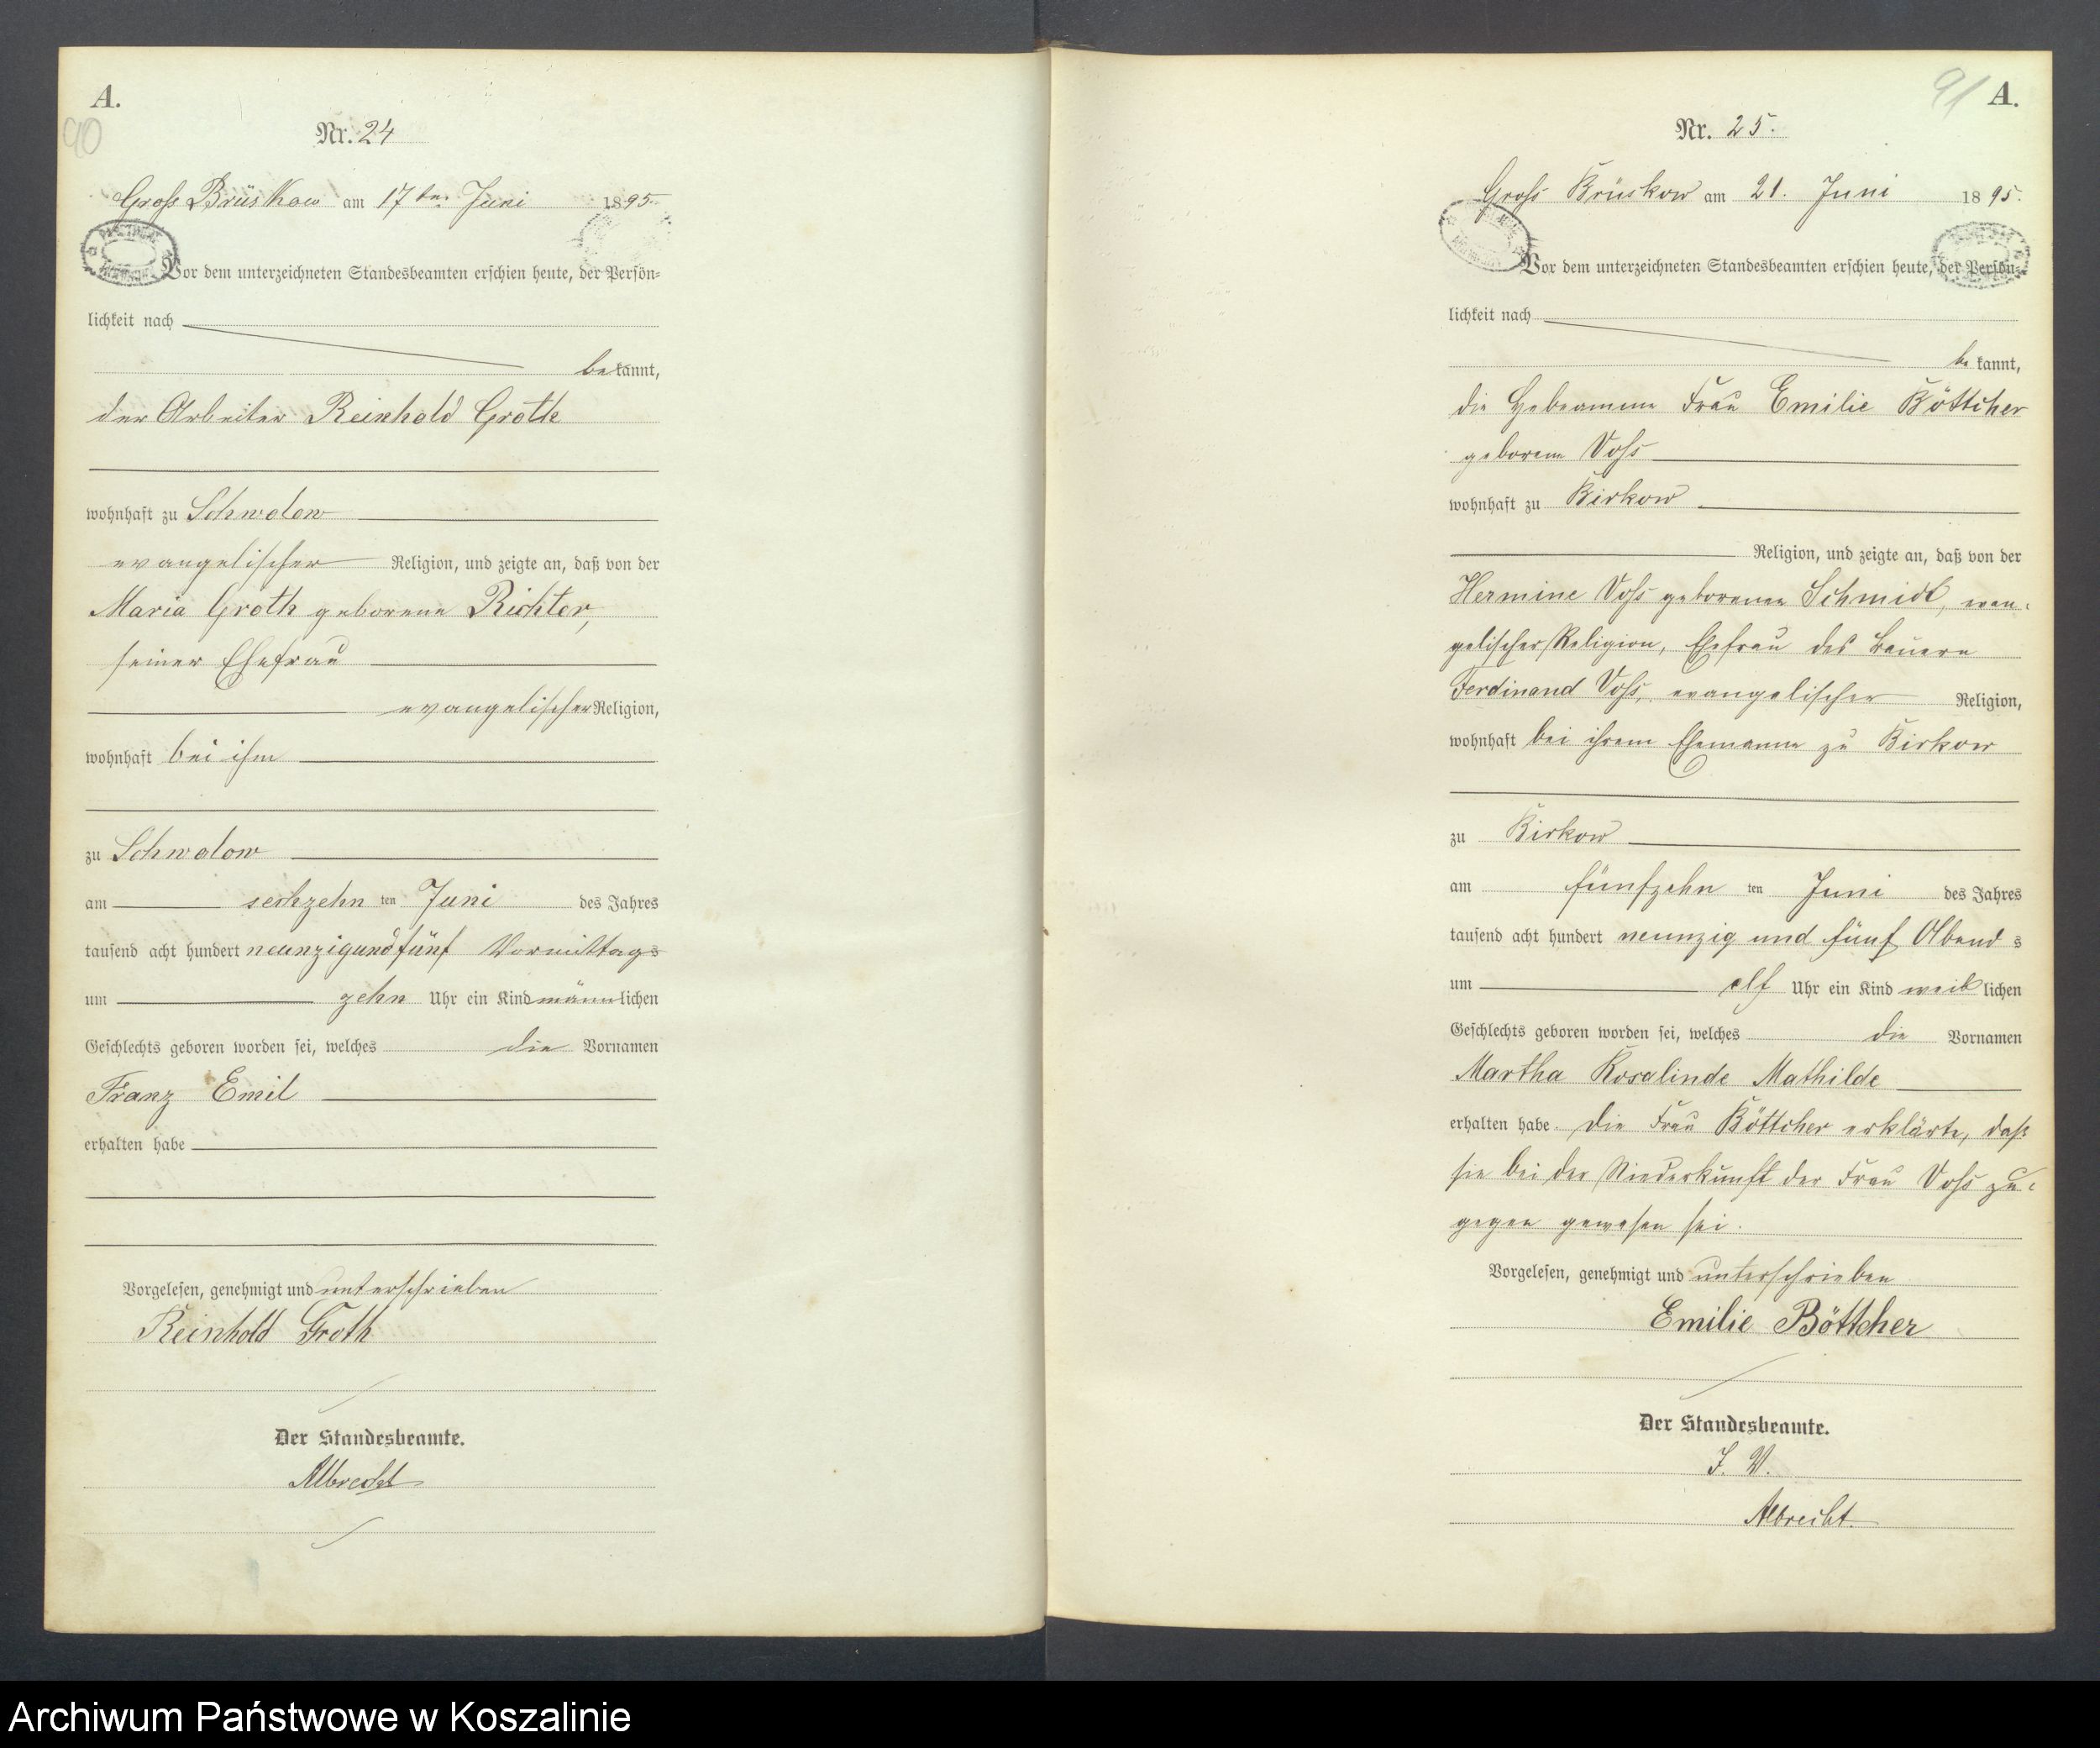 A.
90
Nr. 24
Gross Brüskow am 17ten Juni 1895.
Vor dem unterzeichneten Standesbeamten erschien heute, der Persön=
lichkeit nach
bekannt,
der Arbeiter Reinhold Groth
wohnhaft zu Schwolow
evangelischer Religion, und zeigte an, daß von der
Maria Groth geborene Richter,
seiner Ehefrau
evangelischer Religion,
wohnhaft bei ihm
zu Schwolow
am sechzehn ten Juni des Jahres
tausend acht hundert neunzigundfünf Vormittags
um zehn Uhr ein Kind männlichen
Geschlechts geboren worden sei, welches die Vornamen
Franz Emil
erhalten habe
Vorgelesen, genehmigt und unterschrieben
Reinhold Groth
Der Standesbeamte.
Albrecht
91 A.
Nr. 25.
Gross Brüskow am 21. Juni 1895.
Vor dem unterzeichneten Standesbeamten erschien heute, der Persön=
lichkeit nach
bekannt,
die Hebeamme Frau Emilie Böttcher
geborene Voss
wohnhaft zu Birkow
Religion, und zeigte an, daß von der
Hermine Voss geborenen Schmidt, evan=
gelischer Religion, Ehefrau des Bauern
Ferdinand Voss, evangelischer Religion,
wohnhaft bei ihrem Ehemanne zu Birkow
zu Birkow
am fünfzehn ten Juni des Jahres
tausend acht hundert neunzig und fünf Abends
um elf Uhr ein Kind weiblichen
Geschlechts geboren worden sei, welches die Vornamen
Martha Rosalinde Mathilde
erhalten habe. Die Frau Böttcher erklärte, dass
sie bei der Niederkunft der Frau Voss zu=
gegen gewesen sei.
Vorgelesen, genehmigt und unterschrieben
Emilie Böttcher
Der Standesbeamte.
J. V.
Albrecht.
Archiwum Państwowe w Koszalinie